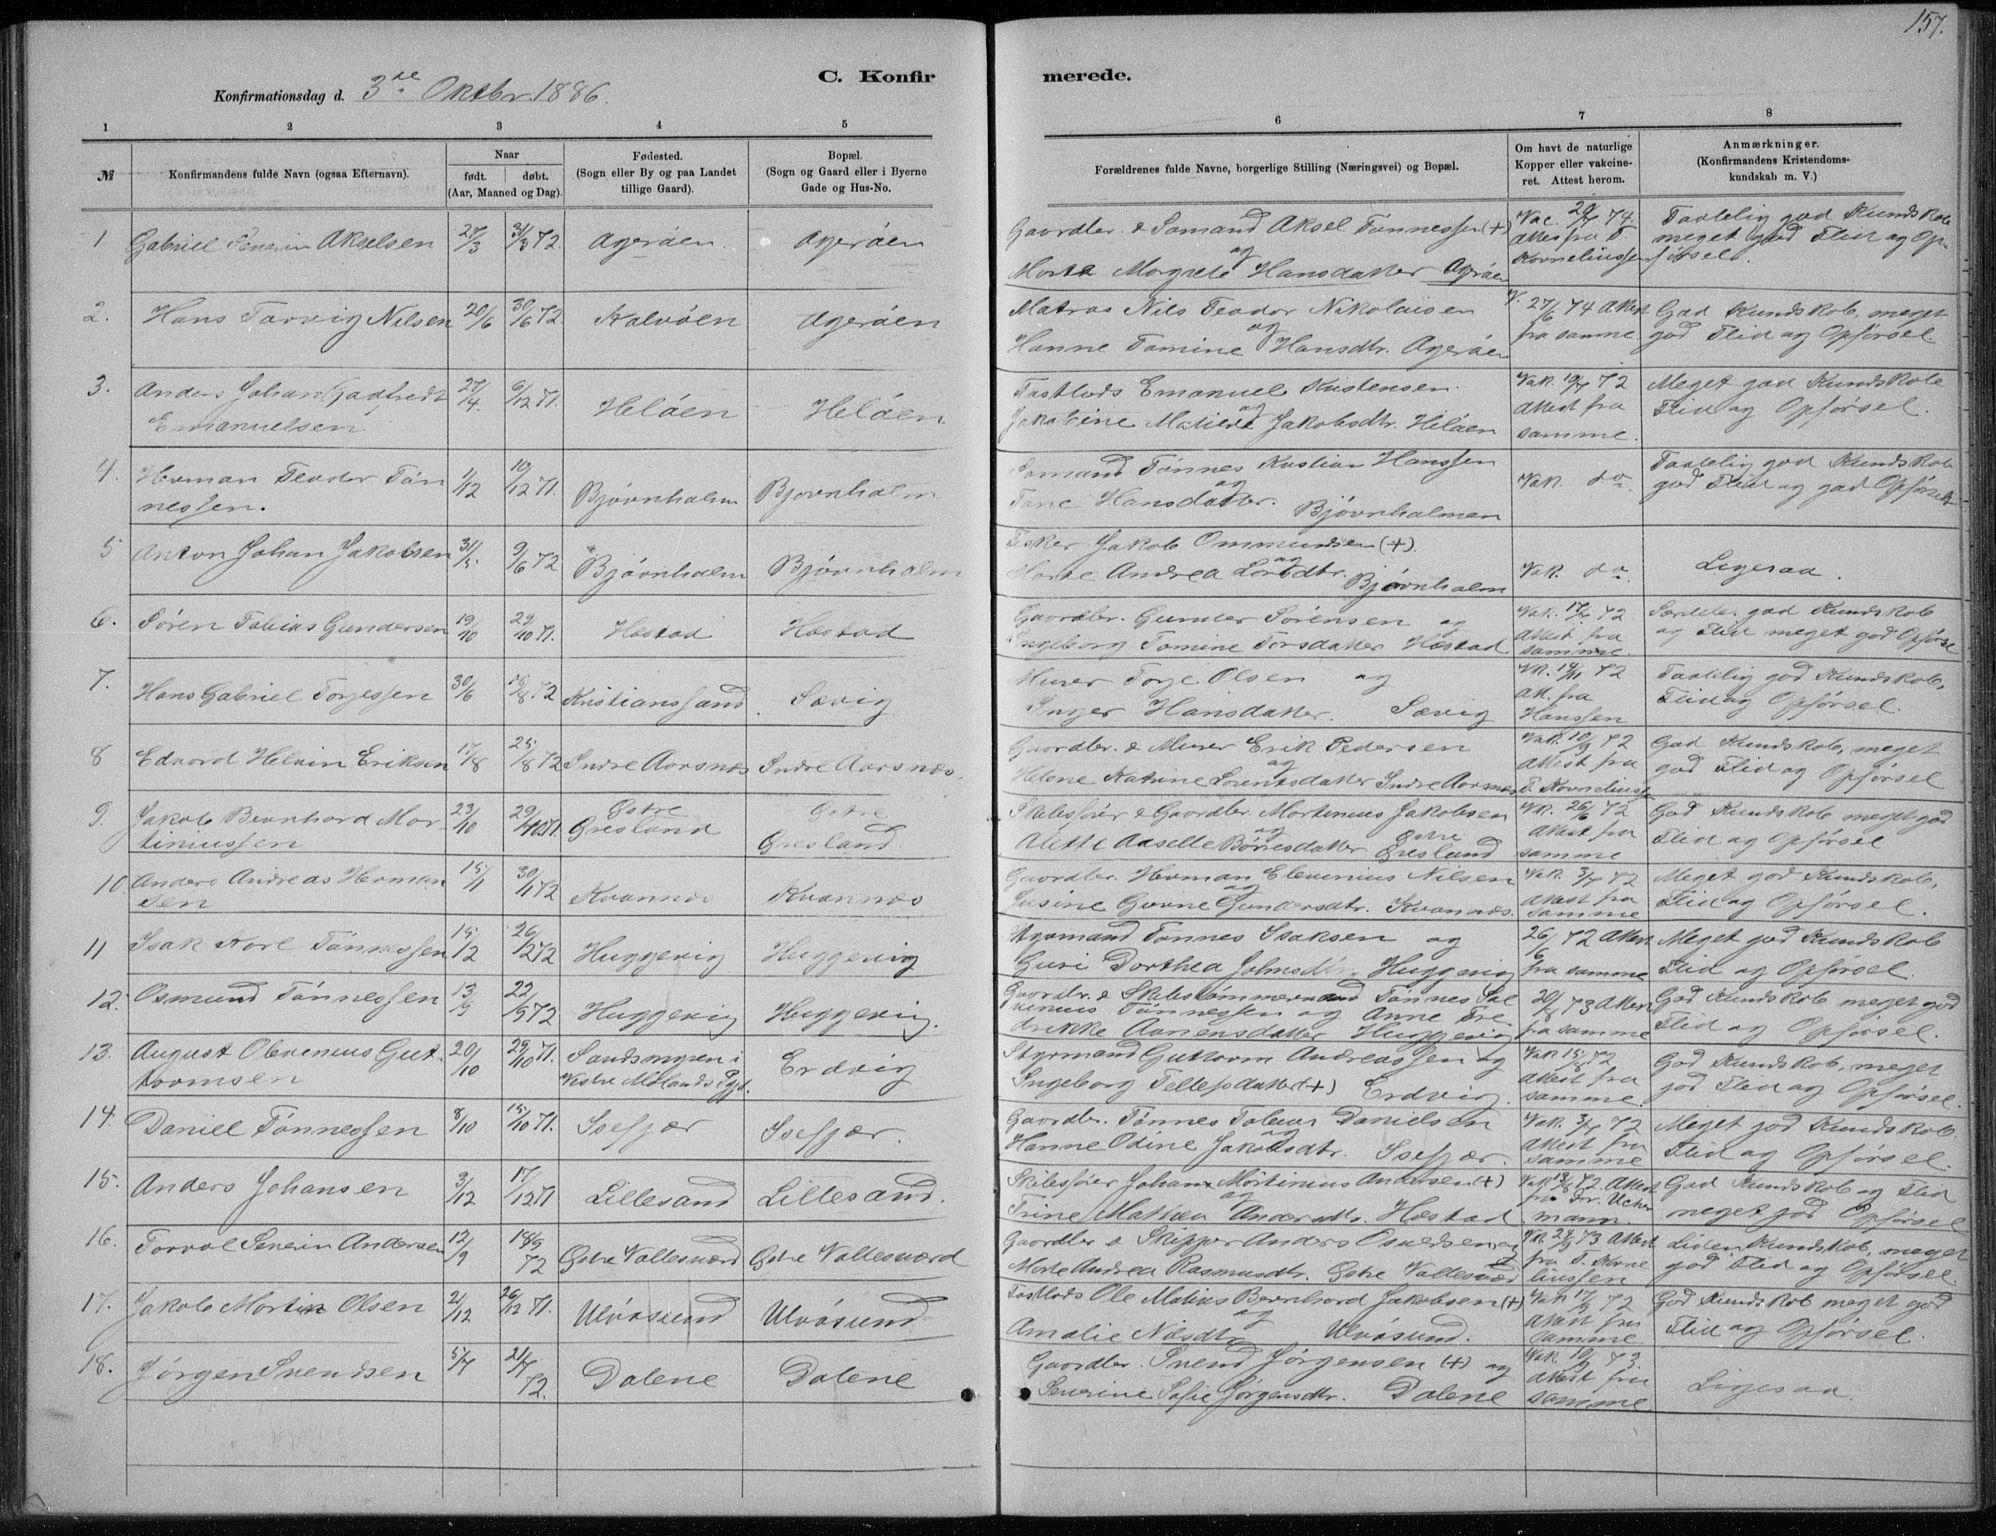 157.
C. Konfirmerede.
Konfirmationsdag d. 3die Oktbr. 1886.
1 2 3 4 5 6 7 8
№ Konfirmandens fulde Navn (ogsaa Efternavn). Naar født. døbt. (Aar, Maaned og Dag). Fødested. (Sogn eller By og paa Landet tillige Gaard). Bopæl. (Sogn og Gaard eller i Byerne Gade og Hus-No. Forældrenes fulde Navne, borgerlige Stilling (Næringsvei) og Bopæl. Om havt de naturlige Kopper eller vakcineret. Attest herom. Anmærkninger. (Konfirmandens Kristendomskundskab m. V.)
1 Gabriel Severin Akselsen 27/3 31/3 72. Agerøen. Agerøen Gaardbr. & Sømand Aksel Tønnessen (+) og Marte Margrete Hansdatter Agerøen Vac. 20/7 74. Attest fra T. Kornelius­sen Taalelig god Kundskab meget god Flid og Opførsel.
2. Hans Tarvig Nilsen 20/6 30/6 72. Kalvøen Agerøen Matros Nils Teodor Nikolaisen og Hanne Tomine Hansdtr. Agerøen V. 27/6 74 Attest fra samme. God Kundskab, meget god Flid og Opførsel
3. Anders Johan Godfredt Emanuelsen 27/4. 6/12 71. Heløen Heløen Fastlods Emanuel Kristensen og Jakobine Matilde Jakobsdtr. Heløen Vak. 19/7 72 Attest fra samme. Meget god Kundskab Flid og Opførsel.
4. Herman Teodor Tønnessen. 1/12 10/12 71. Bjørnholm Bjørnholm Sømand Tønnes Kristian Hanssen og Tone Hansdatter. Bjørnholmen Vak. do. Taalelig god Kundskab god Flid og god Opførsel
5 Anton Johan Jakobsen 31/5. 9/6 72 Bjørnholm Bjørnholm Fisker Jakob Ommundsen (+). og Marte Andrea Larsdtr. Bjørnholm Vak. do. Ligesaa.
6. Søren Tobias Gundersen 19/10 29/10 71. Hæstad Hæstad Gaardbr. Gunder Sørensen og Ingeborg Tomine Torsdatter Hæstad Vak. 17/7 72 Attest fra samme. Særdeles god Kundskab og Flid meget god Opførsel
7. Hans Gabriel Torjessen 30/6 18/8 72 Kristianssand. Sævig Murer Torje Olsen og Inger Hansdatter. Sævig VK. 19/11 72 At. fra Hanssen Taalelig god Kundskab, Flid og Opførsel.
8 Edvard Helvin Eriksen 17/8 25/8 72 Indre Aarsnæs Indre Aarsnæs. Gaardbr. & Murer Erik Pedersen og Helene Katrine Lorentsdatter Indre Aarsnæs Vak. 10/9 72 Attest fra T. Korneliussen God Kundskab, meget god Flid og Opførsel
9. Jakob Bernhard Mortinussen 23/10 29/10 71. Østre Græsland Østre Græsland Skibsfør. & Gaardbr. Mortinius Jakobsen og Alette Aaselle Børresdatter Østre Græsland VK. 26/6 72 Attest fra samme God Kundskab meget god Flid og Opførsel
10. Anders Andreas Hermansen 15/1 30/1 72 Kvannæs Kvannæs Gaardbr. Herman Elevenius Nilsen og Susine Gurine Gundersdtr. Kvannæs. Vak. 3/7 72 Attest fra samme Meget god Kundskab, Flid og Opførsel.
11 Isak Karl Tønnessen 15/12 26/12 72 Huggevig Huggevig Styrmand Tønnes Isaksen og Guri Dorthea Johnsdtr. Huggevig 26/6 72 Attest fra samme Meget god Kundskab Flid og Opførsel.
12. Osmund Tønnessen 13/9 22/9 72 Huggevig Huggevig. Gaardbr. & Skibstømmermand Tønnes Tønnessen og Anne Fredrikke Aanensdatter Huggevig 20/8 73 Attest fra samme God Kundskab, meget god Flid og Opførsel.
13. August Olevenius Guttormsen 20/10 29/10 71. Sandsmyren i Vestre Molands Pgjd. Erdvig Styrmand Guttorm Andreassen og Ingeborg Tellefsdatter (+) Erdvig. Vak 15/8 72 Attest fra samme. God Kundskab, meget god Flid og Opførsel.
14. Daniel Tønnessen 8/10 15/10 71. Isefjær Isefjær. Gaardbr. Tønnes Tobias Danielsen og Hanne Odine Jakobsdtr. Isefjær. Vak. 3/7 72 Attest fra samme Meget god Kundskab Flid og Opførsel.
15. Anders Johansen 3/12 17/12 71 Lillesand Lillesand. Skibsfører Johan Mortinius Andersen (+) og Trine Mathea Andersdtr. Hæstad Vak 13/8 72. Attest fra Dr. Uckermann. God Kundskab og Flid meget god Opførsel
16. Torval Severin Andersen 12/9 18/9 72 Østre Vallesværd Østre Vallesværd Gaardbr & Skipper Anders Osuldsen og Marte Andrea Rasmusdtr. Østre Vallesværd VK. 21/9 73 Attest fra T. Korneliussen Liden Kundskab, meget god Flid og Opførsel.
17. Jakob Martin Olsen 21/12 26/12 71. Ulvøsund Ulvøsund Fastlods Ole Matias Bernhard Jakobsen (+) og Amalie Nilsdtr. Ulvøsund. Vak 17/9 72 Attest fra samme God Kundskab meget god Flid og Opførsel.
18. Jørgen Svendsen 5/7 21/7 72. Dalene Dalene Gaardbr. Svend Jørgensen (+) og Severine Sofie Jørgensdtr. Dalene Vak. 10/9 73. Attest fra samme Ligesaa.